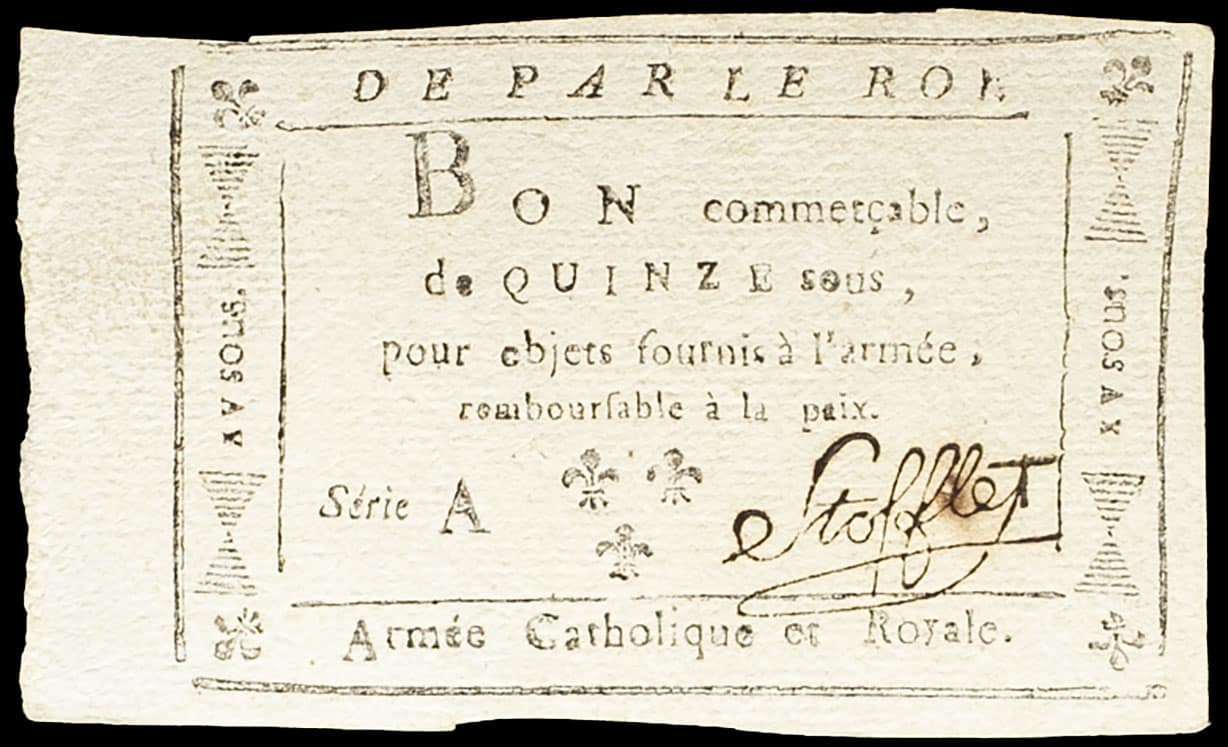 DE PAR LE ROI.
BON commerçable,
de QUINZE sous,
pour objets fournis à l'armée,
rembourſable à la paix.
Série A
Stofflet
Armée Catholique et Royale.
X V SOUS.
X V SOUS.